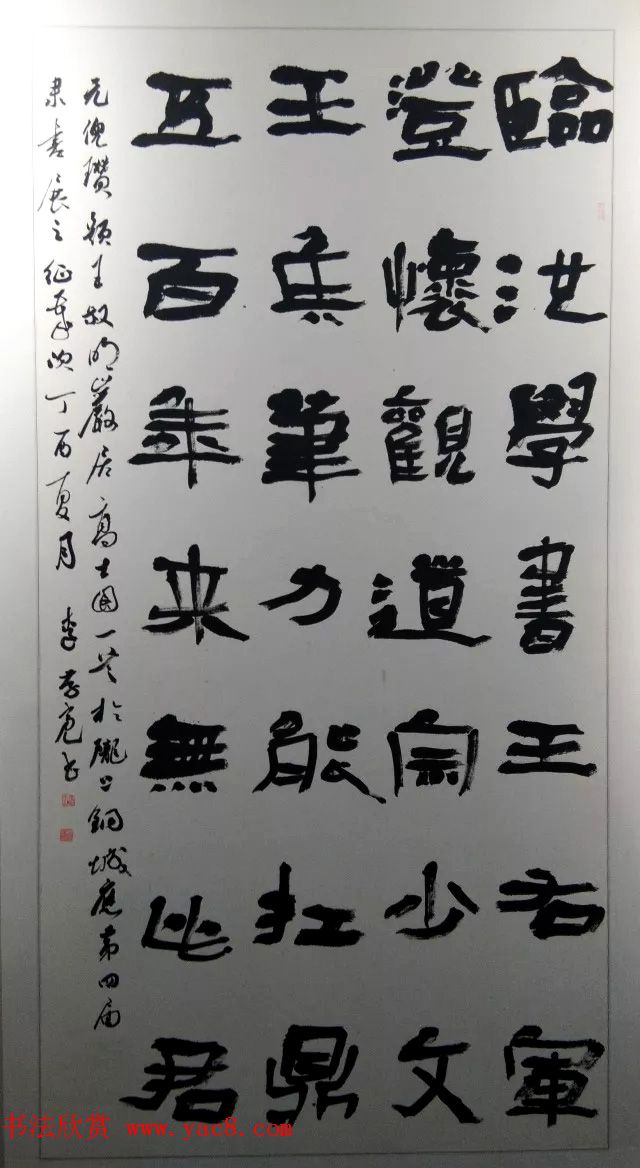 臨池學書王右軍
澄懷觀道宗少文
王侯筆力能扛鼎
五百年來無此君
元倪瓚題王叔明巖居高士圖一首於隴上銅城應第四届
隶書展之征歲次丁酉夏月 李
书法欣赏 www.yac8.com